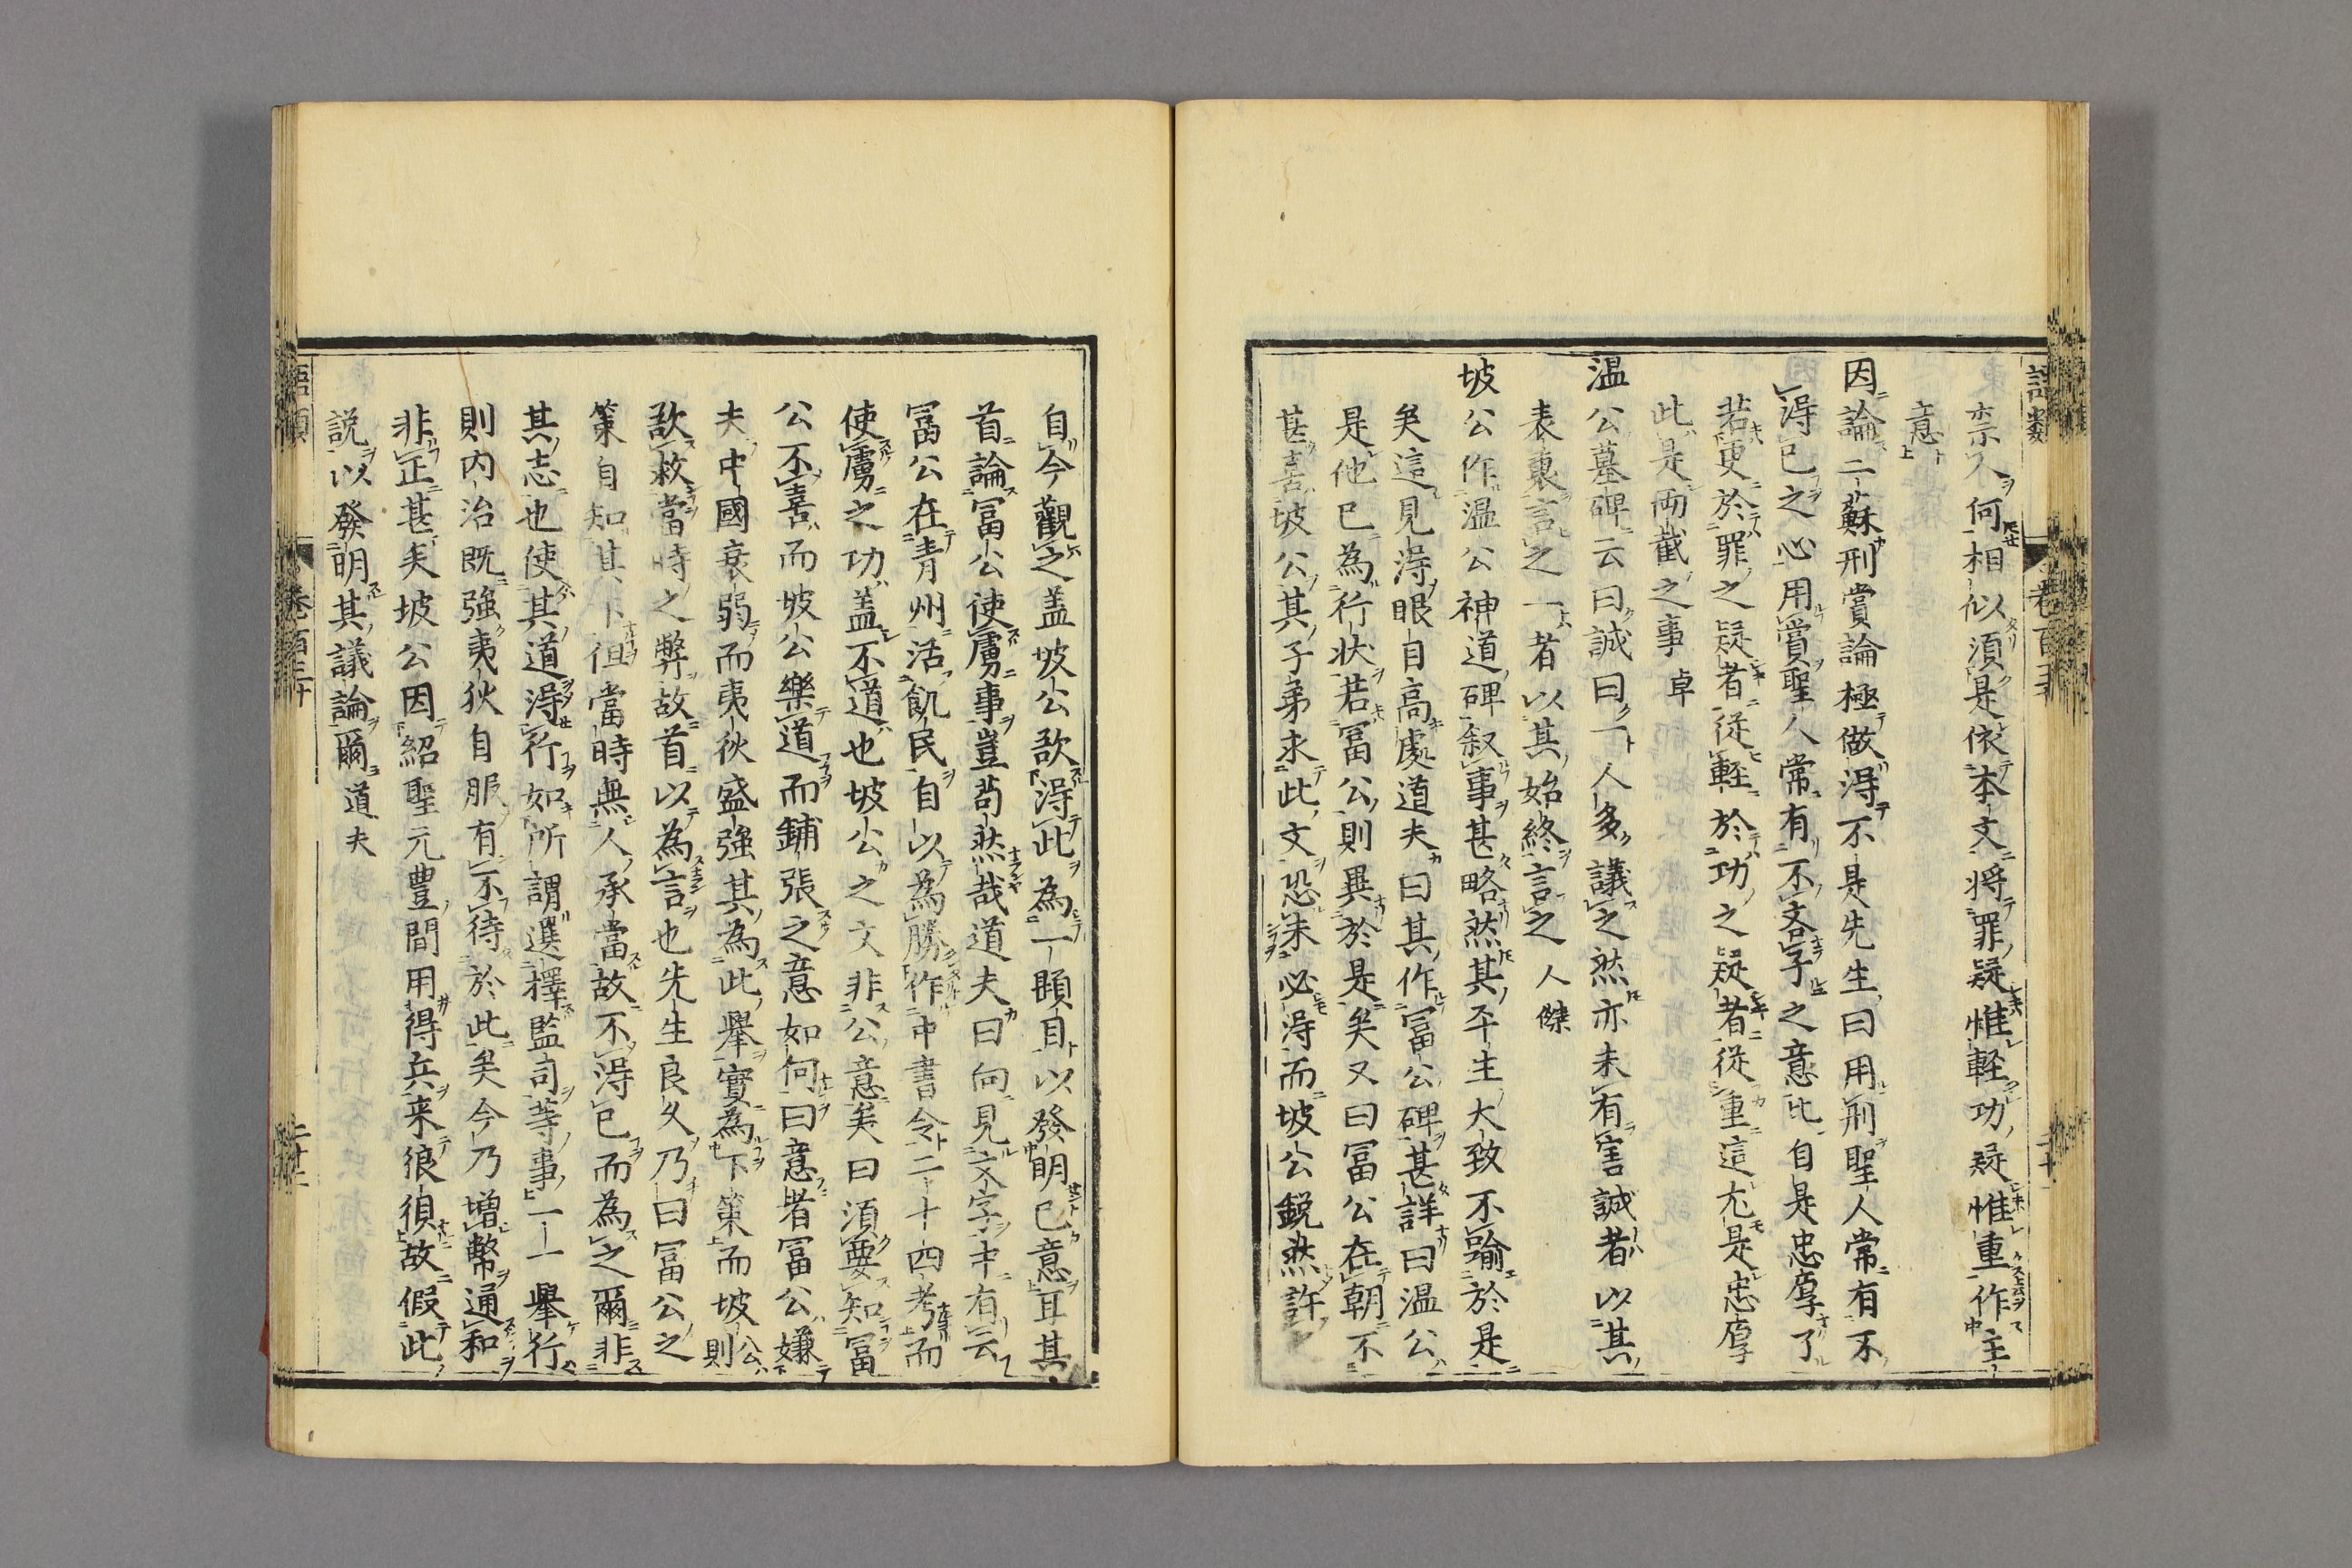 禀不何相似須是依本文將罪疑惟軽功疑惟重作主
意
因論二蘇刑賞論極做得不是先生曰用刑聖人常有不
得已之心用賞聖人常有不吝字之意此自是忠厚了
若更於罪之疑者從軽於功之疑者從重這尤是忠厚
此是兩截之事 卓
温公墓碑云曰誠曰一人多議之然亦未有害誠者以其
表裏言之一者以其始終言之 人傑
坡公作温公神道碑叙事甚略然其平生大致不踰於是
矣這見得眼目高處道夫曰其作冨公碑甚詳曰温公
是他已為行状若冨公則異於是矣又曰冨公在朝不
甚喜坡公其子弟求此文恐未必得而坡公鋭然許
自今觀之盖坡公欲得此為一題目以發明己意耳其
首論冨公使虜事豈苟然哉道夫曰向見文字中有云
冨公在青州活飢民自以為勝作中書令二十四考而
使虜之功盖不道也坡公之文非公意矣曰須要知冨
公不喜而坡公樂道而鋪張之意如何曰意者冨公嫌
夫中國衰弱而夷狄盛強其為此舉實為下策而坡公則
欲救當時之弊故首以為言也先生良久乃曰冨公之
策自知其下但當時無人承當故不得已而為之爾非
其志也使其道得行如所謂選擇監司等事一一舉行
則内治既強夷狄自服有不待於此矣今乃増幣通和
非正甚矣坡公因紹聖元豊間用得兵来狼狽故假此
説以發明其議論爾 道夫
語類 巻百三十